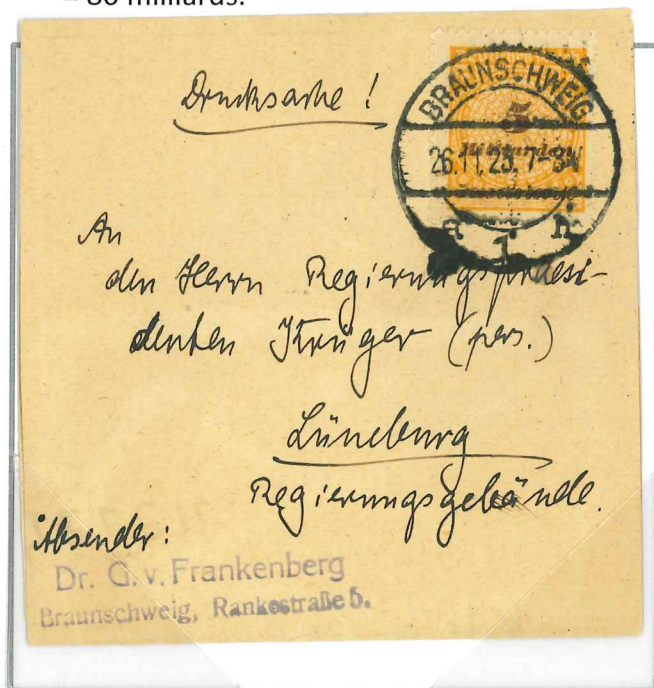 = 80 milliards.
Drucksache !
BRAUNSCHWEIG
5
Milliarden
26.11.23. 7-8N
* 1 n.
An
den Herrn Regierungspraesi-
denten Krüger (pers.)
Lüneburg
Regierungsgebäude.
Absender:
Dr. G. v. Frankenberg
Braunschweig, Rankestraße 5.